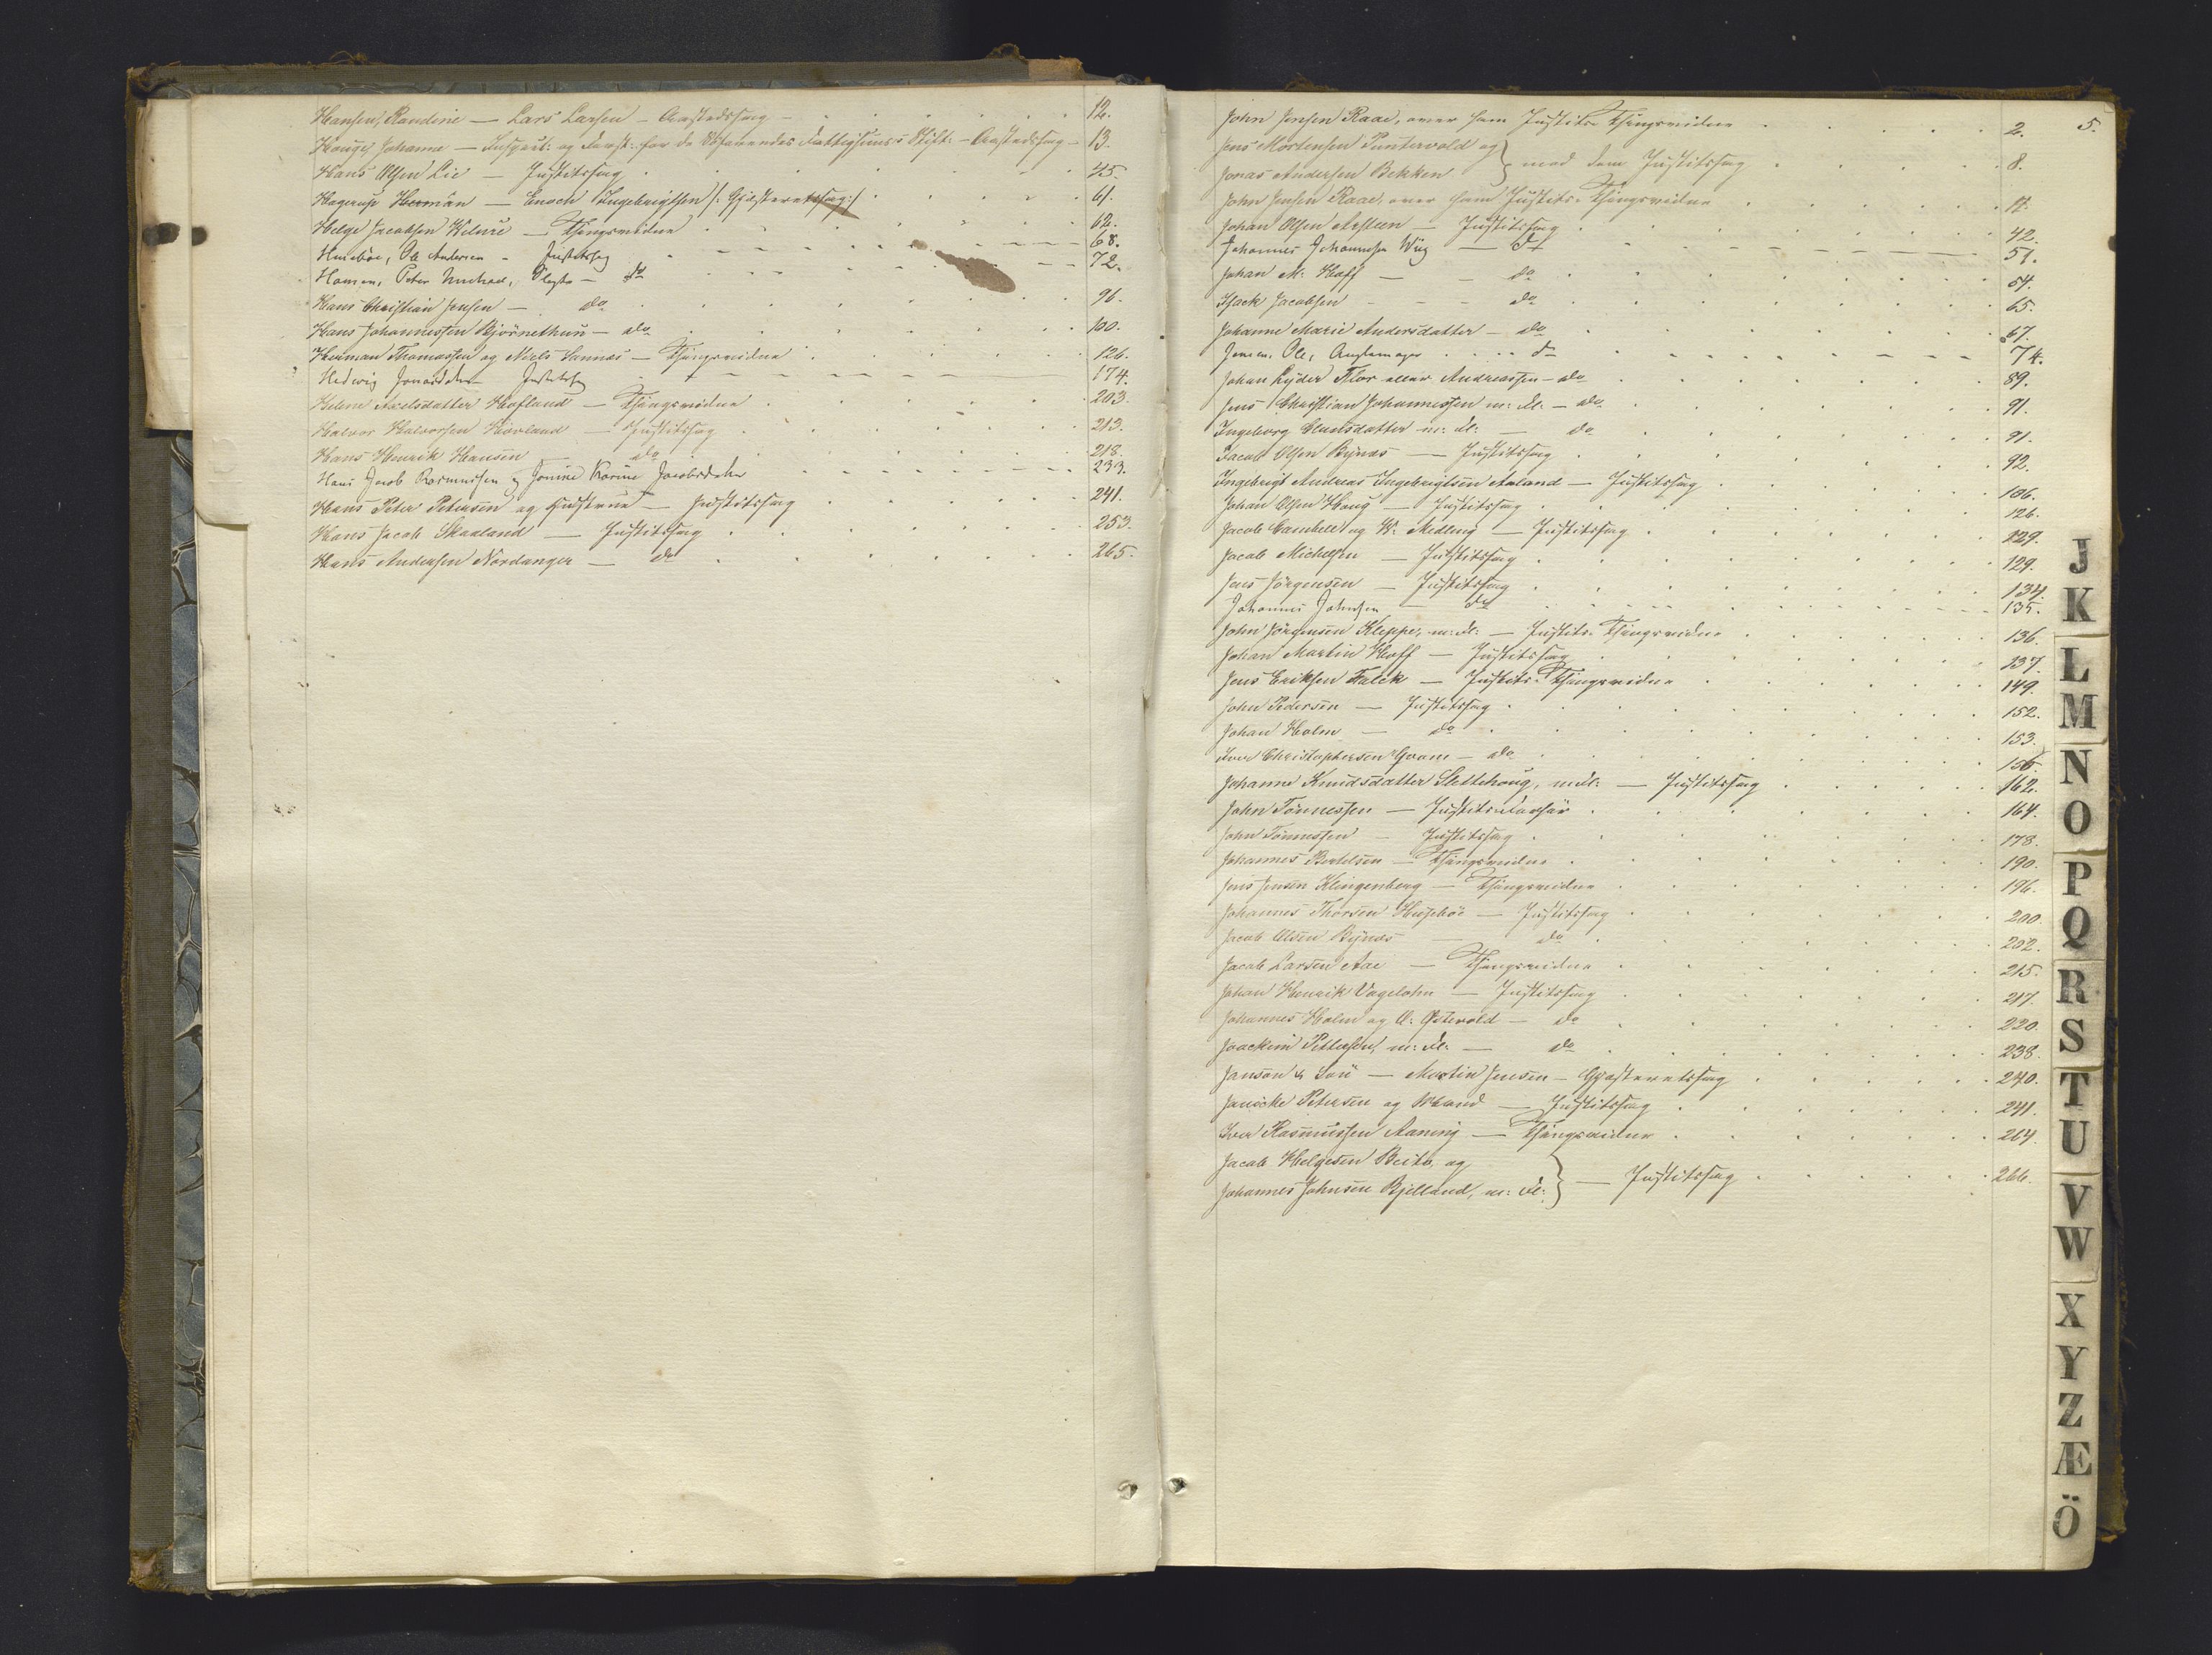 Hansen, Randine — Lars Larsen — Aastedssag — 12.
Houge, Johanna — Inspect: og Forst: for de Søfarendes Fattighuus's Stift: — Aastedssag — 13.
Hans Olsen Lie — Justitssag 45.
Hagerup Herman — Enoch Ingebrigtsen /: Gjæsteretssag :/ 61.
Helge Jacobsen — Thingsvidne 62.
Husebøe, Ole Andersen — Justitssag 68.
Hansen, Peter Michael, — do 72.
Hans Christian Jensen — do 96.
Hans Johannessen Bjørnethun — do 100.
Herman Thomassen og Niels Sannæs — Thingsvidne 126.
Hedvig Jonasdatter Justitssag 174.
Helene Axelsdatter Hofland — Thingsvidne 203.
Halvor Halvorsen Hovland — Justitssag 213.
Hans Henrik Hansen — do 218.
Hans Jacob Rasmussen og Jonine Karine Jacobsdatter 233.
Hans Peter Petersen og Hustrue — Justitssag 241.
Hans Jacob Skaaland — Justitssag 253.
Hans Andersen Nordanger — do 265.
5.
John Jensen Raae, over ham Justits-Thingsvidne 2.
Jens Mortensen Puntervold og
Jonas Andersen Bekken } mod dem Justitssag 8.
John Jensen Raae, over ham Justits-Thingsvidne 17.
Johan Olsen Aasteen — Justitssag 42.
Johannes Johannesen Wiig — do 51.
Johan M. Hoff — do 54.
Isack Jacobsen — do 65.
Johanne Marie Andersdatter — do 67.
Jensen, Ole, do 74.
Johan Ryder Flor eller Andreassen — do 89.
Jens Christian Johannessen m: Fl: — do 91.
Ingeborg Clausdatter m: Fl: — do 91.
Jacob Olsen Bynæs — Justitssag 92.
Ingebrigt Andreas Ingebrigtsen Aaland — Justitssag 106.
Johan Olsen Haug — Justitssag 126.
Jacob Cambell og W: Medling — Justitssag 129.
Jacob Michelsen — Justitssag 129.
Jens Jörgensen — Justitssag 134.
Johannes Johnsen — do 135.
John Jörgensen Kleppe, m: Fl: — Justits-Thingsvidne 136.
Johan Martin Hoff — Justitssag 137.
Jens Eriksen Falck — Justits-Thingsvidne 149.
John Pedersen — Justitssag 152.
Johan Holm — do 153.
Iver Christophersen Gram — do 156.
Johanne Knudsdatter Slettehoug, m Fl: — Justitssag 162.
John Tönnessen — 164.
John Tönnessen — Justitssag 178.
Johannes Bertelsen — Thingsvidne 190.
Jens Jensen Klingenberg — Thingsvidne 196.
Johannes Thorsen Husebøe — Justitssag 200.
Jacob Olsen Bynæs — do 202.
Jacob Larsen Aae — Thingsvidne 215.
Johan Henrik Vagelohn — Justitssag 217.
Johannes Holm og O: Østevold — do 220.
Joackim Pettersen, m: Fl: — do 238.
Janson & Søn — Martin Jensen — Gjæsteretssag 240.
Janicke Petersen og Mand — Justitssag 241.
Iver Rasmussen Aaning — Thingsvidne 264.
Jacob Helgesen Beito, og
Johannes Johnsen Bjelland, m: Fl: } — Justitssag 266.
J
K
L
M
N
O
P
Q
R
S
T
U
V
W
X
Y
Z
Æ
Ö